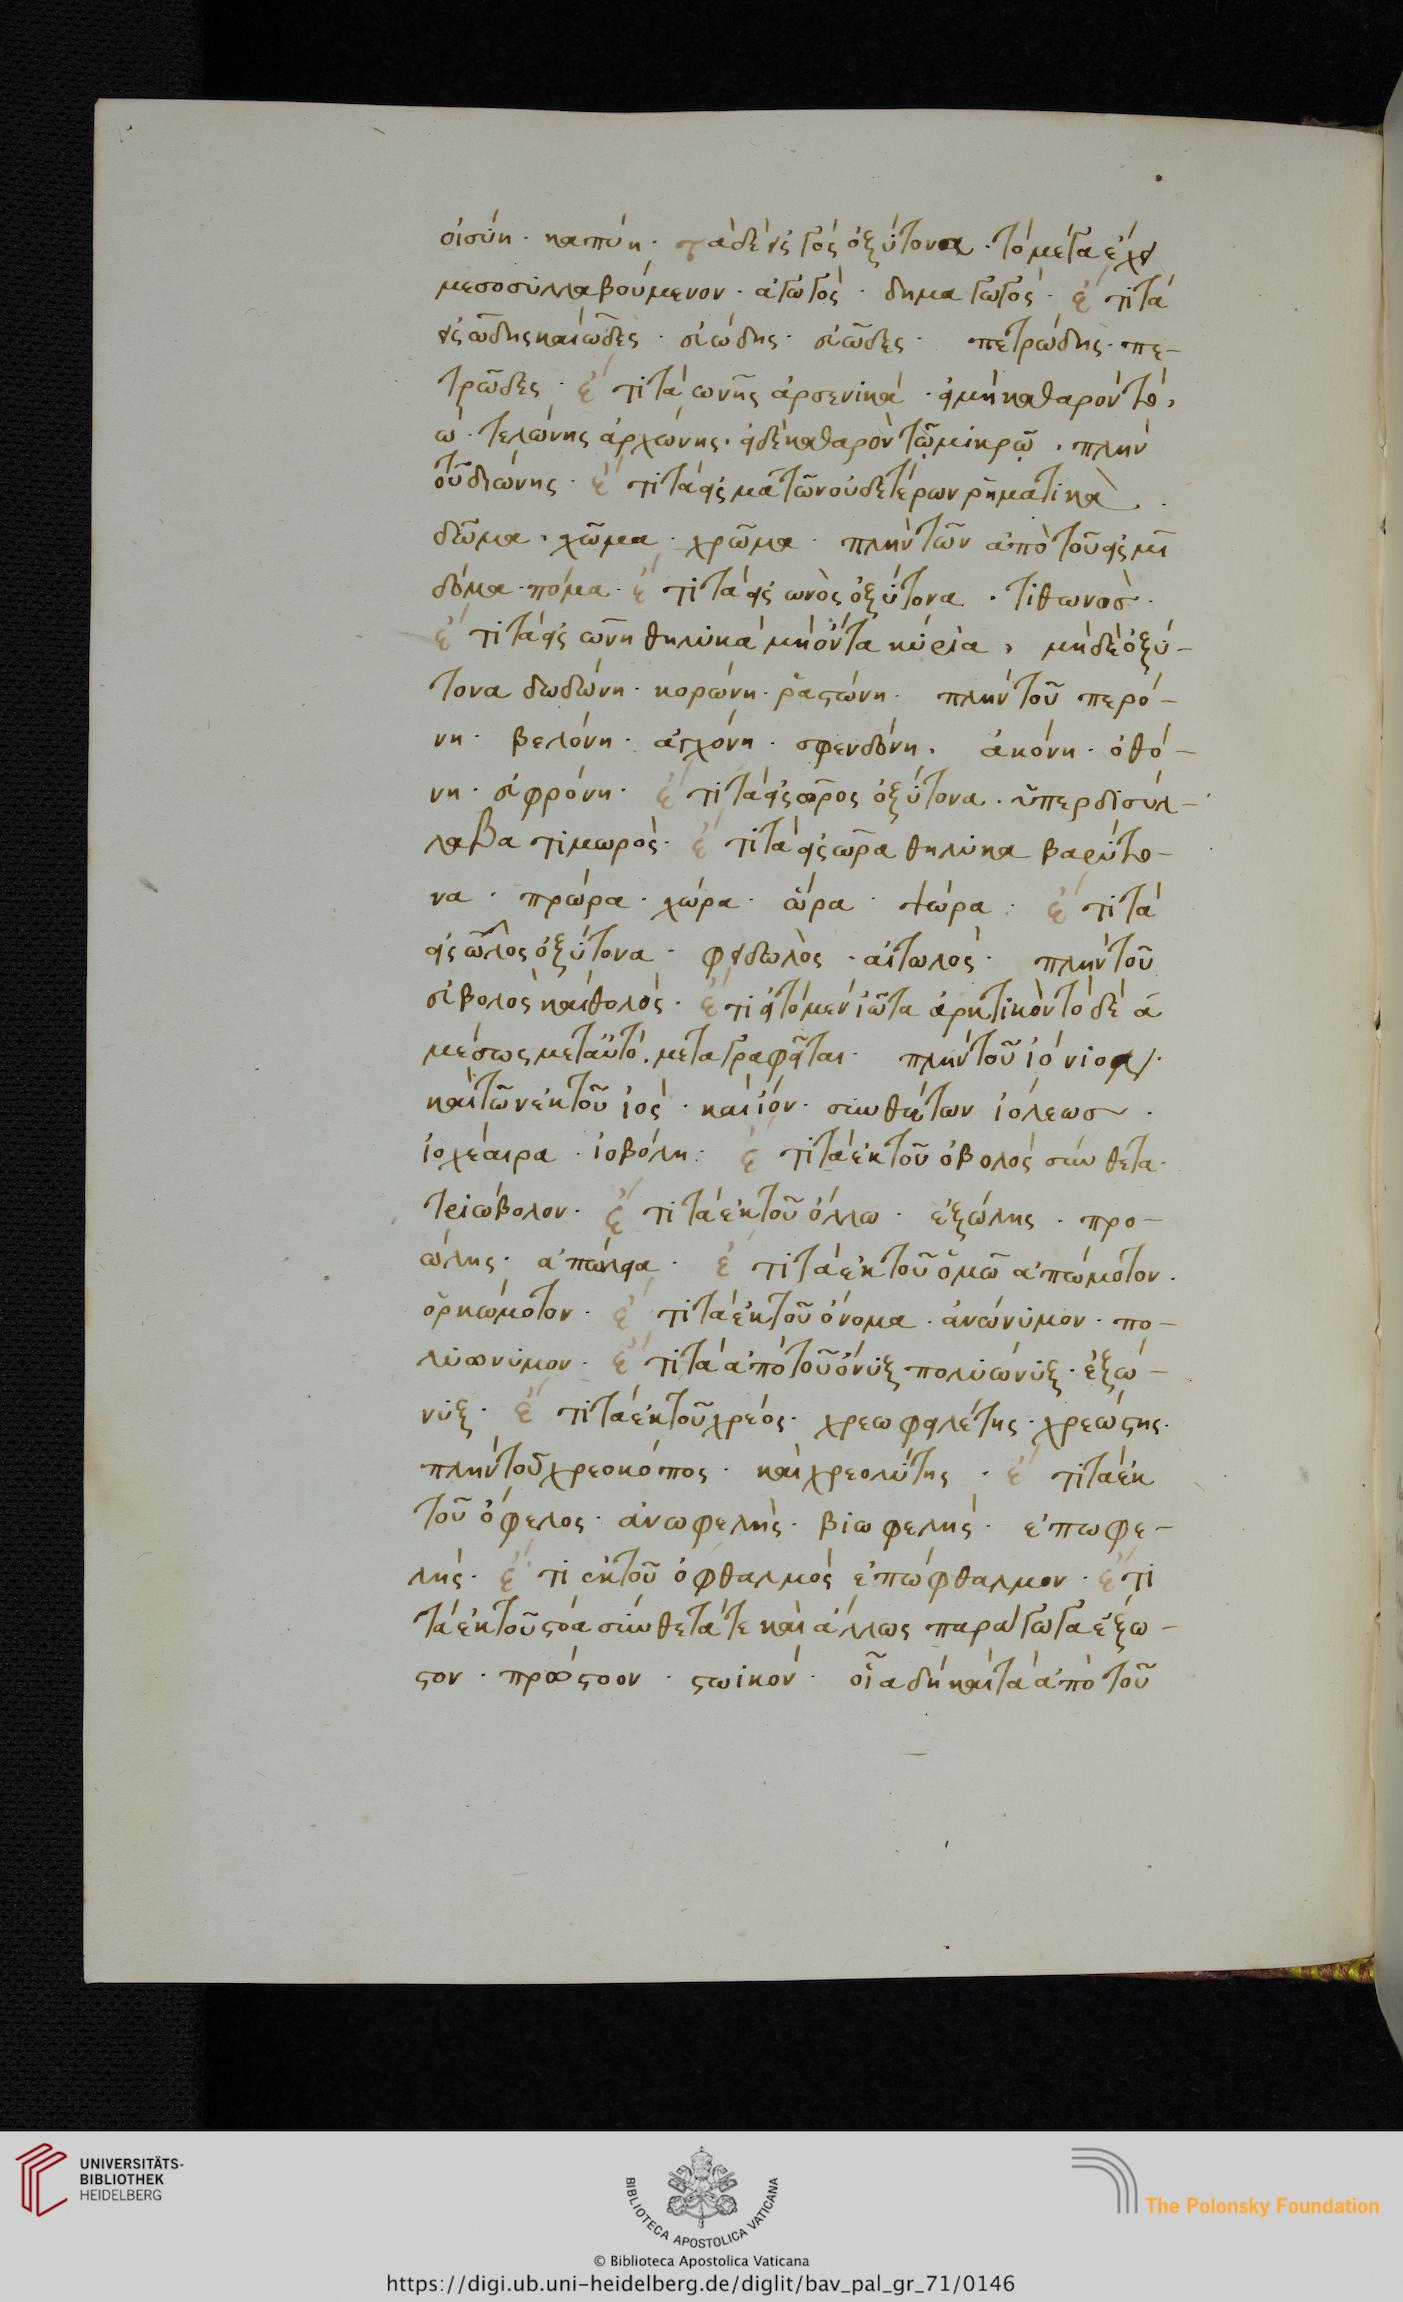 οἰσύη · καπύη · τὰ δὲ εἰς γός ὀξύτονα · τὸ μέγα ἔχει
μεσοσυλλαβούμενον · ἀγωγὸς · δημαγωγὸς · ἔτι τὰ
εἰς ώδης καὶ ώδες · οἰώδης · οἰῶδες · πετρώδης · πε-
τρῶδες · ἔτι τὰ ωνης ἀρσενικὰ · εἰ μὴ καθαρὸν τὸ,
ω · τελώνης ἀρχώνης · εἰ δὲ καθαρὸν τῷ μικρῷ · πλὴν
τοῦ διώνης · ἔτι τὰ εἰς μα τῶν οὐδετέρων ῥηματικὰ
δῶμα · χῶμα · χρῶμα · πλὴν τῶν ἀπὸ τοῦ εἰς μι
δόμα · πόμα · ἔτι τὰ εἰς ωνὸς ὀξύτονα · τιθωνὸς ·
ἔτι τὰ εἰς ωνη θηλυκὰ μὴ ὄντα κύρια, μηδὲ ὀξύ-
τονα δωδώνη · κορώνη · ῥαστώνη · πλὴν τοῦ περό-
νη · βελόνη · ἀγχόνη · σφενδόνη · ἀκόνη · ὀθό-
νη · σιφρόνη · ἔτι τὰ εἰς ωρος ὀξύτονα · ὑπερδισύλ-
λαβα τιμωρὸς · ἔτι τὰ εἰς ωρα θηλυκα βαρύτο-
να · πρώρα · χώρα · ὥρα · ψώρα · ἔτι τὰ
εἰς ωλος ὀξύτονα · φειδωλὸς · αἰτωλὸς · πλὴν τοῦ
σίβολος καὶ θολὸς · ἔτι εἰ τὸ μὲν ἰῶτα ἀρκτικὸν τὸ δὲ ά
μέσως μετ' αὐτό · μεταγραφεῖται · πλὴν τοῦ ἰόνιος
καὶ τῶν ἐκ τοῦ ἰὸς · καὶ ἰόν · συνθέτων ἰόλεως ·
ἰοχέαιρα · ἰοβόλη : ἔτι τὰ ἐκ τοῦ ὀβολὸς σύνθετα ·
τριώβολον · ἔτι τὰ ἐκ τοῦ ὄλλω · ἐξώλης · προ-
ώλης · ἀπώλεια · ἔτι τὰ ἐκ τοῦ ὀμῶ ἀπώμοτον ·
ὁρκώμοτον · ἔτι τὰ ἐκ τοῦ ὄνομα · ἀνώνυμον · πο-
λυώνυμον · ἔτι τὰ ἀπὸ τοῦ ὄνυξ πολυώνυξ · ἐξώ-
νυξ · ἔτι τὰ ἐκ τοῦ χρέος · χρεωφειλέτης · χρεώστης ·
πλὴν τοῦ χρεοκόπος · καὶ χρεολύτης · ἔτι τὰ ἐκ
τοῦ ὄφελος · ἀνωφελὴς · βιωφελὴς · ἐπωφε-
λὴς · ἔτι ἐκ τοῦ ὀφθαλμὸς ἐπώφθαλμον · ἔτι
τὰ ἐκ τοῦ στόα σύνθετά τε καὶ ἄλλως παράγωγα ἔξω-
στον · πρόστοον · στωικόν · οἷα δὴ καὶ τὰ ἀπὸ τοῦ
UNIVERSITÄTS-
BIBLIOTHEK
HEIDELBERG
BIBLIOTECA APOSTOLICA VATICANA
The Polonsky Foundation
© Biblioteca Apostolica Vaticana
https://digi.ub.uni-heidelberg.de/diglit/bav_pal_gr_71/0146